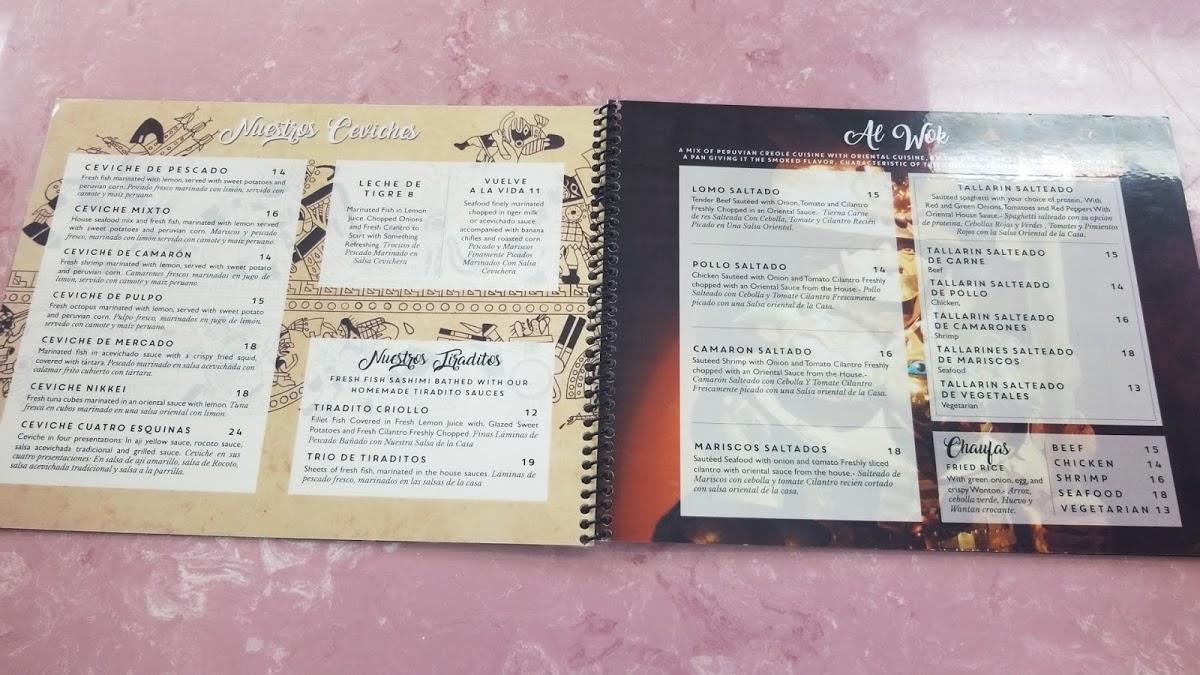 Nuestros Ceviches
CEVICHE DE PESCADO 14
Fresh fish marinated with lemon, served with sweet potatoes and
peruvian corn. Pescado fresco marinado con limón, servido con
camote y maíz peruano.
CEVICHE MIXTO 16
House seafood mix and fresh fish, marinated with lemon served
with sweet potatoes and peruvian corn. Mariscos y pescado
fresco, marinado con limón servido con camote y maíz peruano.
CEVICHE DE CAMARÓN 14
Fresh shrimp marinated with lemon, served with sweet potato
and peruvian corn. Camarones frescos marinados en jugo de
limón, servido con camote y maíz peruano.
CEVICHE DE PULPO 15
Fresh octopus marinated with lemon, served with sweet potato
and peruvian corn. Pulpo fresco, marinados en jugo de limón,
servido con camote y maíz peruano.
CEVICHE DE MERCADO 18
Marinated fish in acevichado sauce with a crispy fried squid,
covered with tártara. Pescado marinado en salsa acevichada con
calamar frito cubierto con tártara.
CEVICHE NIKKEI 18
Fresh tuna cubes marinated in an oriental sauce with lemon. Tuna
fresca en cubos marinado en una salsa oriental con limon.
CEVICHE CUATRO ESQUINAS 24
Ceviche in four presentations: In aji yellow sauce, rocoto sauce,
salsa acevichada tradicional and grilled sauce. Ceviche en sus
cuatro presentaciones: En salsa de aji amarillo, salsa de Rocoto,
salsa acevichada tradicional y salsa a la parrilla.
LECHE DE
TIGRE 8
Marinated Fish in Lemon
Juice Chopped Onions
and Fresh Cilantro to
Start with Something
Refreshing. Trocitos de
Pescado Marinado en
Salsa Cevichera
VUELVE
A LA VIDA 11
Seafood finely marinated
chopped in tiger milk
or acevichado sauce
accompanied with banana
chifles and roasted corn.
Pescado y Mariscos
Finamente Picados
Marinados Con Salsa
Cevichera
Nuestros Tiraditos
FRESH FISH SASHIMI BATHED WITH OUR
HOMEMADE TIRADITO SAUCES
TIRADITO CRIOLLO 12
Fillet Fish Covered in Fresh Lemon Juice with, Glazed Sweet
Potatoes and Fresh Cilantro Freshly Chopped. Finas Láminas de
Pescado Bañado con Nuestra Salsa de la Casa
TRIO DE TIRADITOS 19
Sheets of fresh fish, marinated in the house sauces. Laminas de
pescado fresco, marinados en las salsas de la casa
Al Wok
A MIX OF PERUVIAN CREOLE CUISINE WITH ORIENTAL CUISINE,
A PAN GIVING IT THE SMOKED FLAVOR, CHARACTERISTIC OF
LOMO SALTADO 15
Tender Beef Sautéed with Onion, Tomato and Cilantro
Freshly Chopped in an Oriental Sauce.- Tierna Carne
de res Salteada Con Cebolla, Tomate y Cilantro Recién
Picado en Una Salsa Oriental.
POLLO SALTADO 14
Chicken Sautéed with Onion and Tomato Cilantro Freshly
chopped with an Oriental Sauce from the House.- Pollo
Salteado con Cebolla y Tomate Cilantro Frescamente
picado con una Salsa oriental de la Casa.
CAMARON SALTADO 16
Sautéed Shrimp with Onion and Tomato Cilantro Freshly
chopped with an Oriental Sauce from the House.-
Camarón Salteado con Cebolla Y Tomate Cilantro
Frescamente picado con una Salsa oriental de la Casa.
MARISCOS SALTADOS 18
Sautéed Seafood with onion and tomato Freshly sliced
cilantro with oriental sauce from the house.- Salteado de
Mariscos con cebolla y tomate Cilantro recién cortado
con salsa oriental de la casa.
TALLARIN SALTEADO
Sauteed spaghetti with your choice of protein, With
Red and Green Onions, Tomatoes and Red Peppers With
Oriental House Sauce.- Spaghetti salteado con su opcion
de proteina, Cebollas Rojas y Verdes , Tomates y Pimientos
Rojos con la Salsa Oriental de la Casa.
TALLARIN SALTEADO
DE CARNE 15
Beef
TALLARIN SALTEADO
DE POLLO 14
Chicken,
TALLARIN SALTEADO
DE CAMARONES 16
Shrimp
TALLARINES SALTEADO
DE MARISCOS 18
Seafood
TALLARIN SALTEADO
DE VEGETALES 13
Vegetarian
Chaufas
FRIED RICE
With green onion, egg, and
crispy Wonton.- Arroz,
cebolla verde, Huevo y
Wantan crocante.
BEEF 15
CHICKEN 14
SHRIMP 16
SEAFOOD 18
VEGETARIAN 13